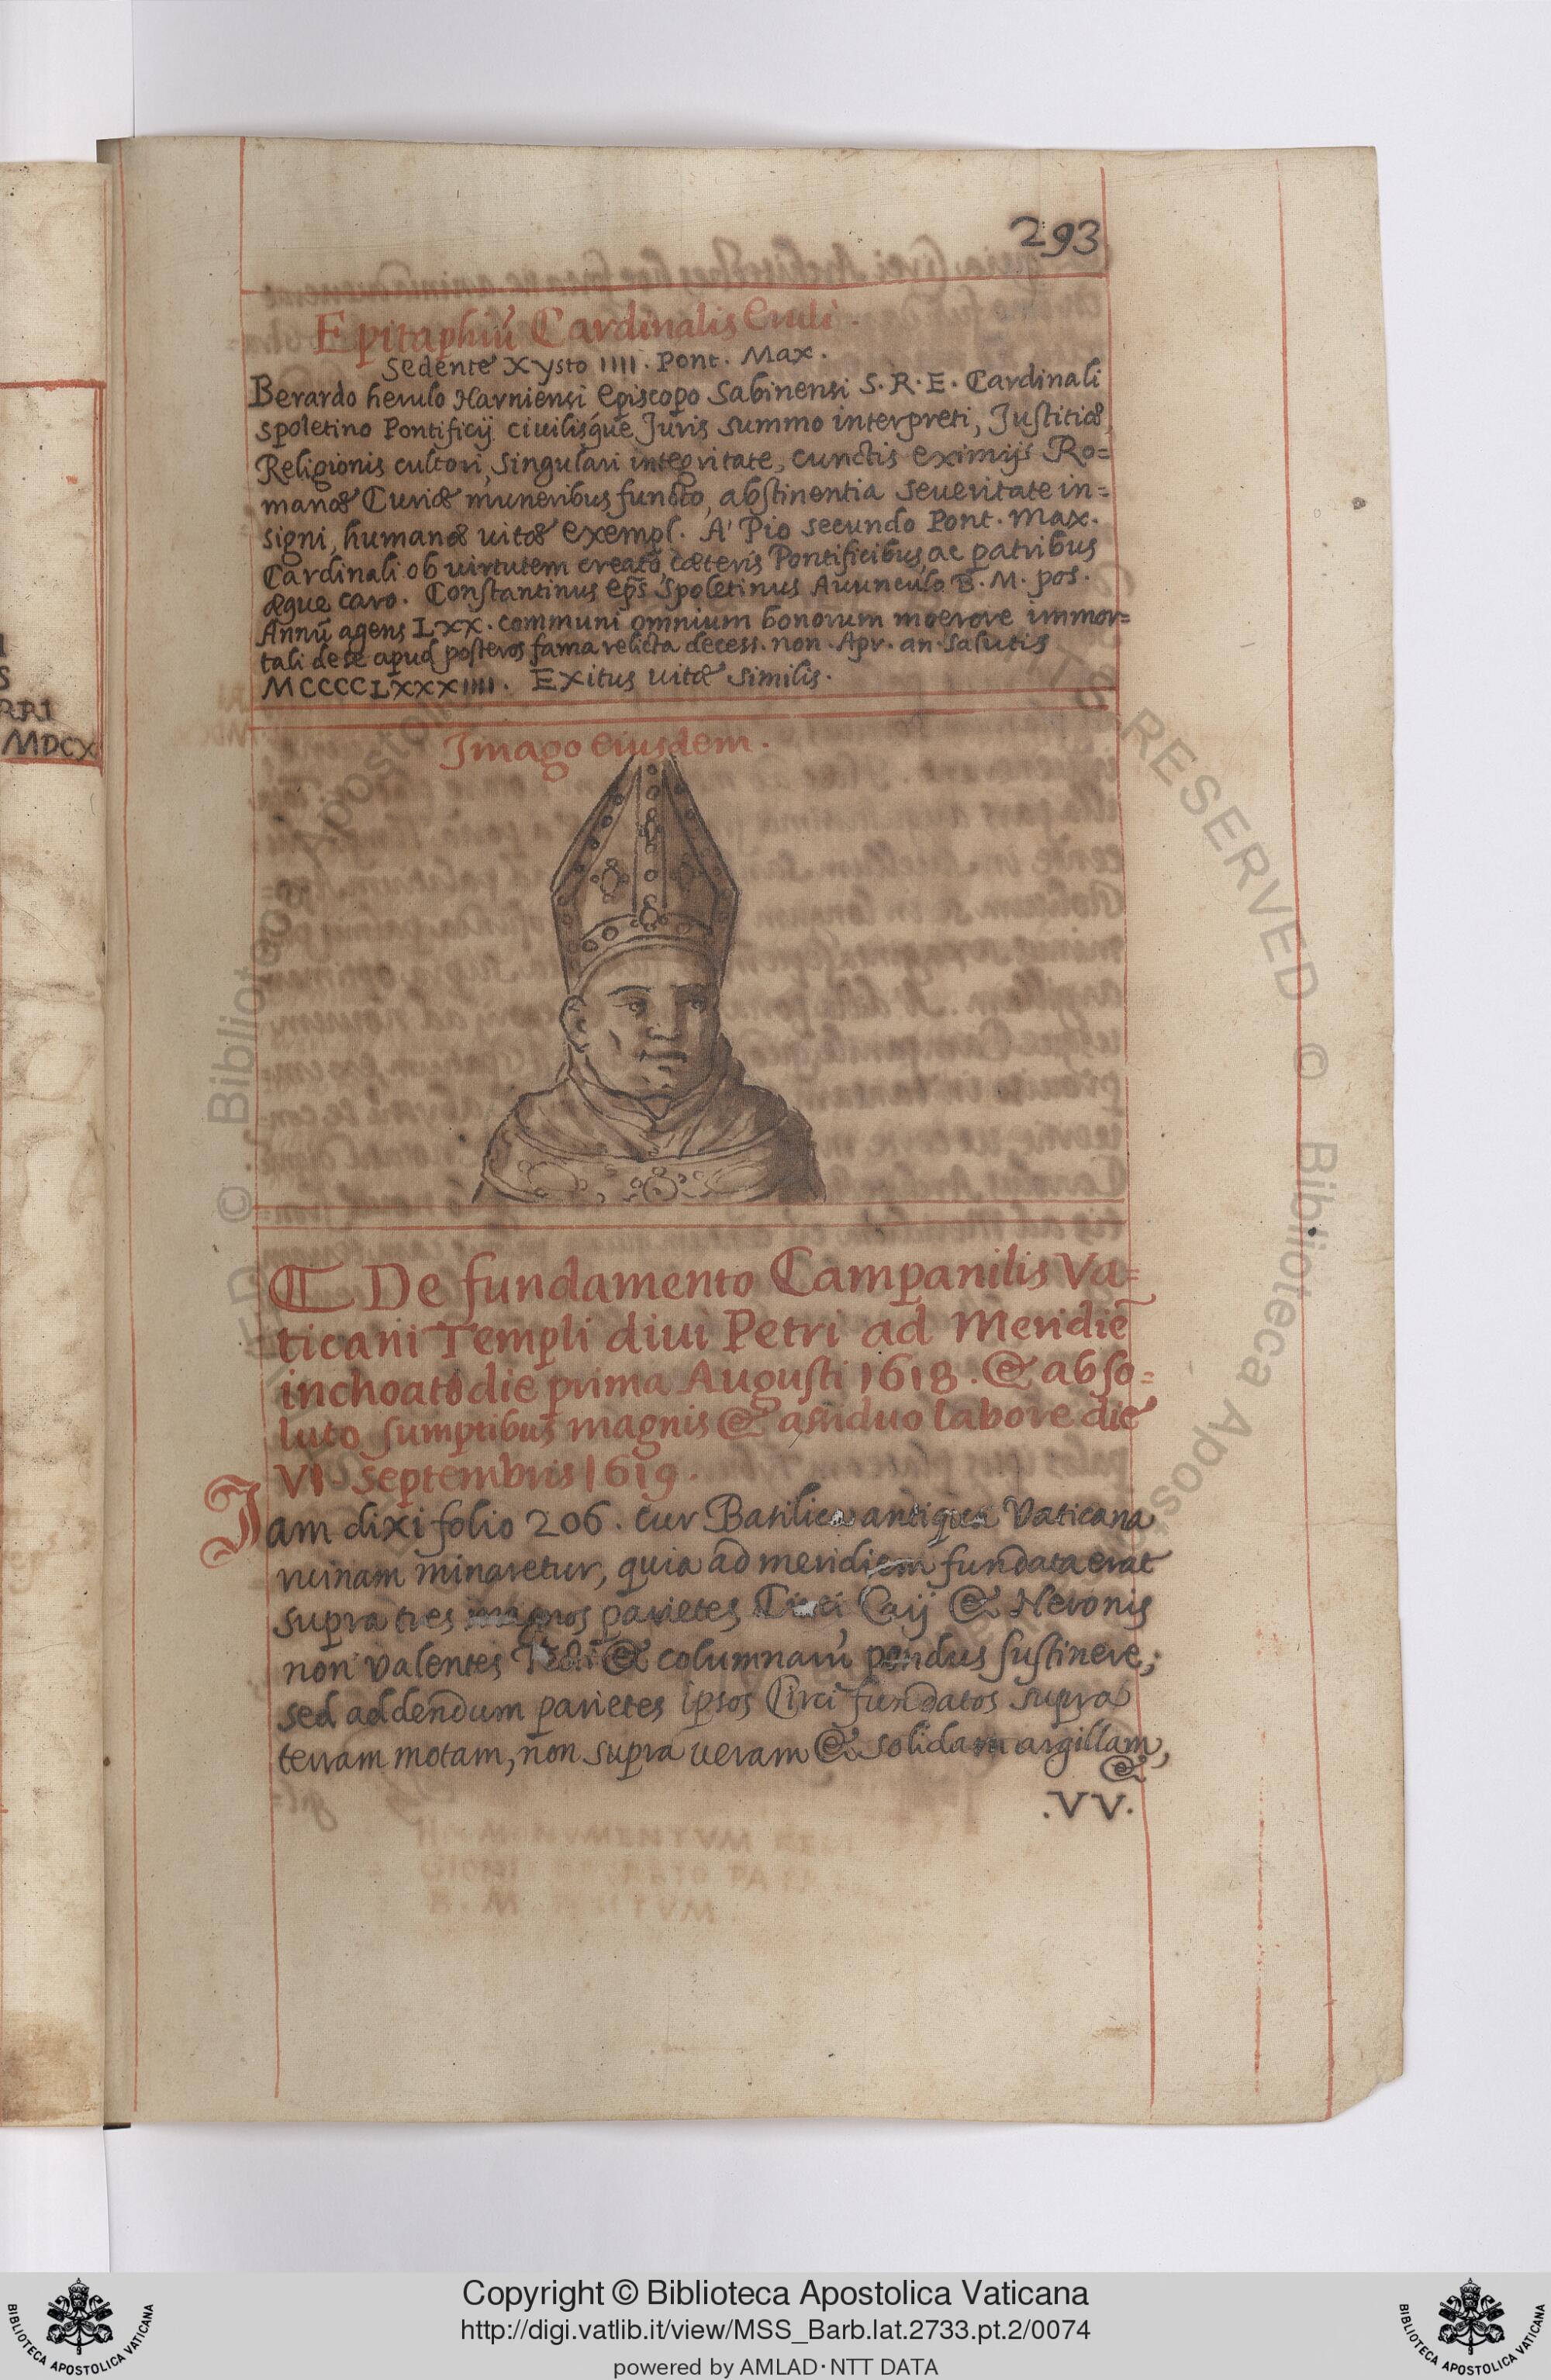 293
Epitaphiũ Cardinalis Eruli.
Sedente Xysto IIII. Pont. Max.
Berardo herulo Narniensi Episcopo Sabinensi S. R. E. Cardinali
spoletino Pontificij ciuilisque Juris summo interpreti, Justitiæ,
Religionis cultori, singulari integritate, cunctis eximijs Ro=
manæ Curiæ muneribus functo, abstinentia seueritate in=
signi, humanæ uitæ exempl. A' Pio secundo Pont. Max.
Cardinali ob uirtutem creato, cæteris Pontificibus, ac patribus
æque caro. Constantinus eps̃ Spoletinus Auunculo B. M. pos.
Annũ agens LXX. communi omnium bonorum moerore immor=
tali de se apud posteros fama relicta decess. non. Apr. an. salutis
MCCCCLXXXIIII. Exitus uitæ similis.
Imago eiusdem.
De fundamento Campanilis Va=
ticani Templi diui Petri ad Meridiẽ
inchoato die prima Augusti 1618. & abso=
luto sumptibus magnis & assiduo labore die
VI. Septembris 1619.
Iam dixi folio 206. cur Basilica antiqua Vaticana
ruinam minaretur, quia ad meridiem fundata erat
supra tres magnos parietes Circi Caij & Neronis
non valentes & columnarũ pondus sustinere;
sed addendum parietes ipsos Circi fundatos supra
terram motam, non supra ueram & solidam argillam,
&
.VV.
RRI
MDCX
Copyright © Biblioteca Apostolica Vaticana
http://digi.vatlib.it/view/MSS_Barb.lat.2733.pt.2/0074
powered by AMLAD·NTT DATA
BIBLIOTECA APOSTOLICA VATICANA
BIBLIOTECA APOSTOLICA VATICANA